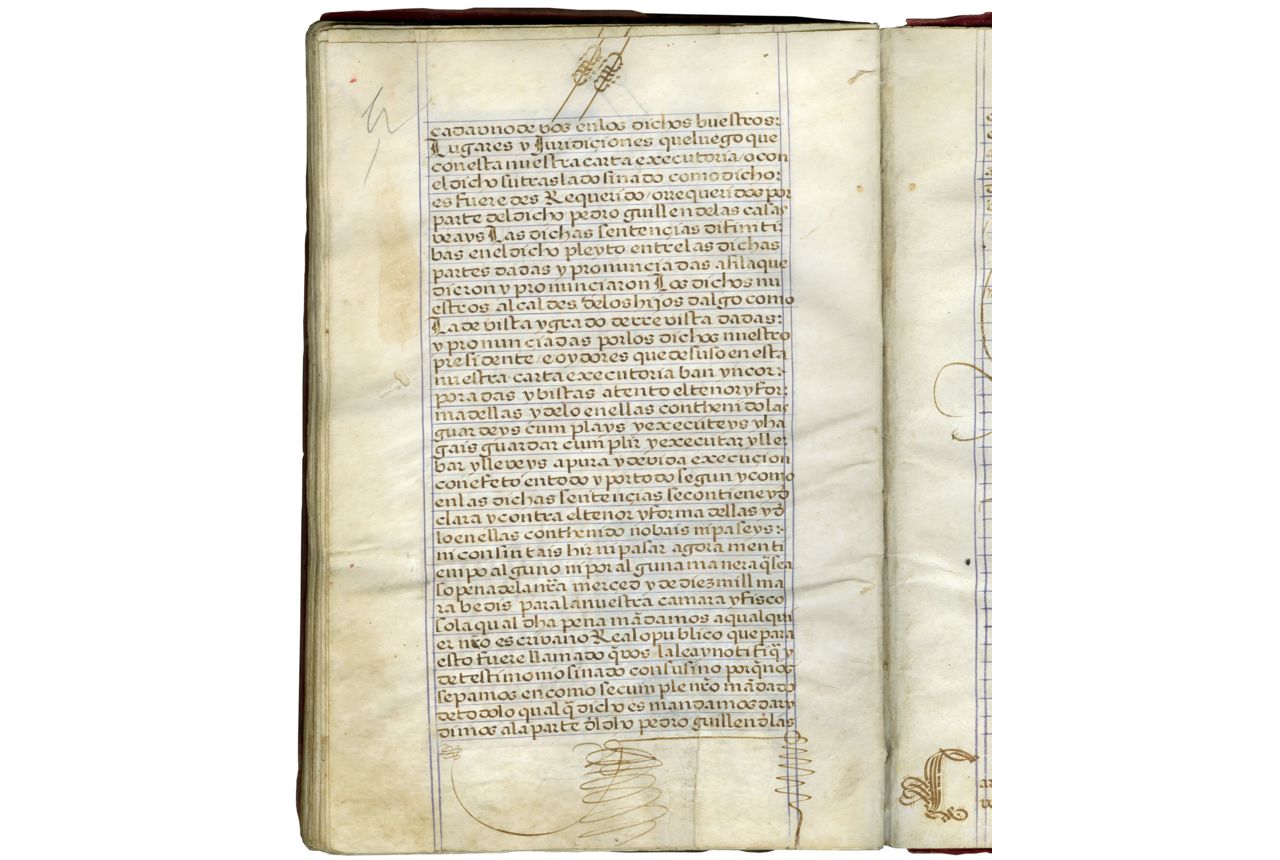 cada uno de vos en los dichos buestros:
Lugares y Juridiçiones que luego que
con esta nuestra carta executoria / o con
el dicho su traslado sinado como dicho:
es fueredes Requerido / o requeridos por
parte del dicho pedro guillen de las casas
beays Las dichas sentencias difiniti:
bas en el dicho pleyto entre las dichas
partes dadas y pronunciadas asi la que
dieron y pronunciaron Los dichos nu
estros alcaldes de los hijos dalgo como
La de vista y grado de rrevista dadas:
y pronunciadas por los dichos nuestro
presidente / e oydores que de suso en esta
nuestra carta executoria ban yncor:
poradas y bistas atento el tenor y for:
ma dellas y de lo en ellas conthenido las
guardeys cumplays y executeys y ha
gais guardar cumplir y executar y lle:
bar y lleveys a pura y devida execuçion
con efeto en todo y por todo segun y como
en las dichas sentençias se contiene y d
clara y contra el tenor y forma dellas y d
lo en ellas conthenido no bais ni paseys:
ni consintais hir ni pasar agora ni en ti
empo alguno ni por alguna manera q̃ sea
so pena de la nr̃a merced y de diez mill ma
rabedis para la nuestra camara y fisco
so la qual dha pena mãdamos a qualqui
er nr̃o escribano Real o publico que para
esto fuere llamado q̃ vos la lea y notifiq̃ y
de testimonio sinado con su sino porq̃ nos
sepamos en como se cumple nr̃o mãdado
de todo lo qual q̃ dicho es mandamos dar y
dimos a la parte dl dho pedro guillen d las